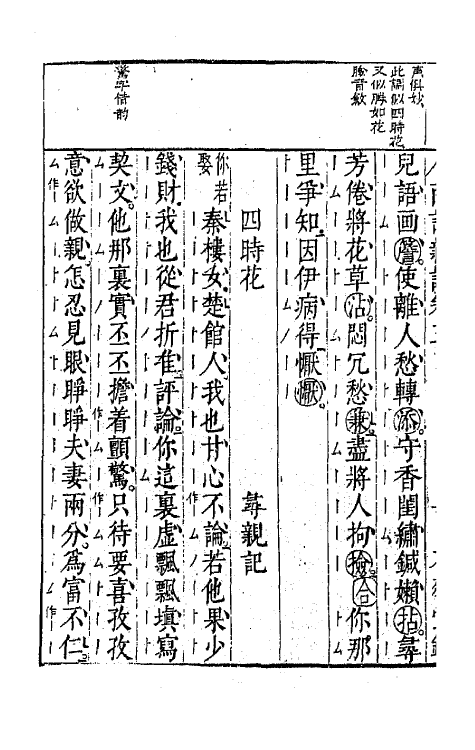 声俱妙
此調似四時花
又似勝如花
驚字借韵
兒語画簷使離人愁轉添守香閨繡鍼嬾拈尋
芳倦將花草沾悶冗愁兼盡將人拘檢合你那
里爭知因伊病得懨懨
四時花 尋親記
你若娶秦樓女楚館人我也甘心不論若他果少
錢財我也從君折准評論你這裏虛飄飄填寫
契文他那裏實丕丕擔着顫驚只待要喜孜孜
意欲做親怎忍見眼睜睜夫妻兩分為富不仁